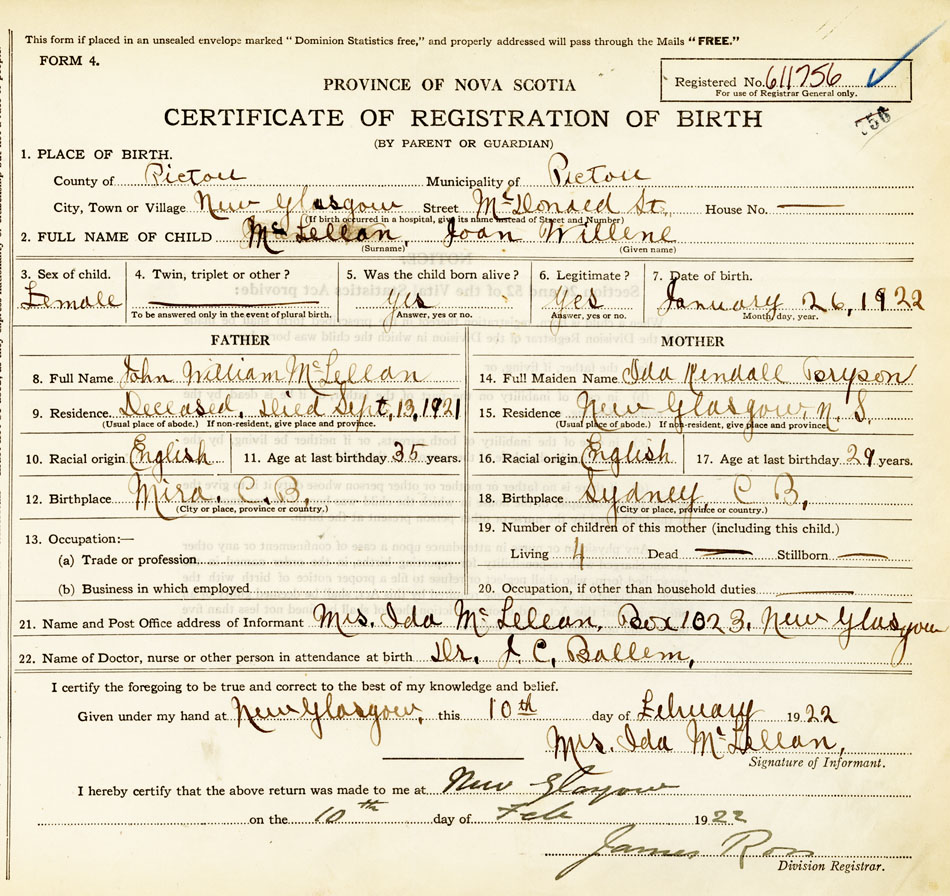 This form if placed in an unsealed envelope marked "Dominion Statistics free," and properly addressed will pass through the Mails "FREE."
FORM 4.
PROVINCE OF NOVA SCOTIA
Registered No. 611756
For use of Registrar General only.
756
CERTIFICATE OF REGISTRATION OF BIRTH
(BY PARENT OR GUARDIAN)
1. PLACE OF BIRTH.
County of Pictou Municipality of Pictou
City, Town or Village New Glasgow Street McDonald St. House No. —
(If birth occurred in a hospital, give its name instead of Street and Number)
2. FULL NAME OF CHILD McLellan, Joan Willene
(Surname) (Given name)
3. Sex of child. 4. Twin, triplet or other? 5. Was the child born alive? 6. Legitimate? 7. Date of birth.
Female — Yes Yes January 26, 1922
To be answered only in the event of plural birth. Answer, yes or no. Answer, yes or no. Month, day, year.
FATHER MOTHER
8. Full Name John William McLellan 14. Full Maiden Name Ida Kendall Bryson
9. Residence. Deceased. Died Sept, 13, 1921 15. Residence New Glasgow, N. S.
(Usual place of abode.) If non-resident, give place and province. (Usual place of abode.) If non-resident, give place and province.
10. Racial origin English 11. Age at last birthday 35 years. 16. Racial origin English 17. Age at last birthday 29 years.
12. Birthplace Mira. C. B. 18. Birthplace Sydney, C B,
(City or place, province or country,) (City or place, province or country.)
13. Occupation:— 19. Number of children of this mother (including this child.)
(a) Trade or profession Living 4 Dead — Stillborn —
(b) Business in which employed 20. Occupation, if other than household duties —
21. Name and Post Office address of Informant Mrs. Ida McLellan, Box 1023, New Glasgow
22. Name of Doctor, nurse or other person in attendance at birth Dr. J. C. Ballem,
I certify the foregoing to be true and correct to the best of my knowledge and belief.
Given under my hand at New Glasgow, this 10th day of February 1922
Mrs. Ida McLellan,
Signature of Informant.
I hereby certify that the above return was made to me at New Glasgow
on the 10th day of Feb 1922
James Ross
Division Registrar.